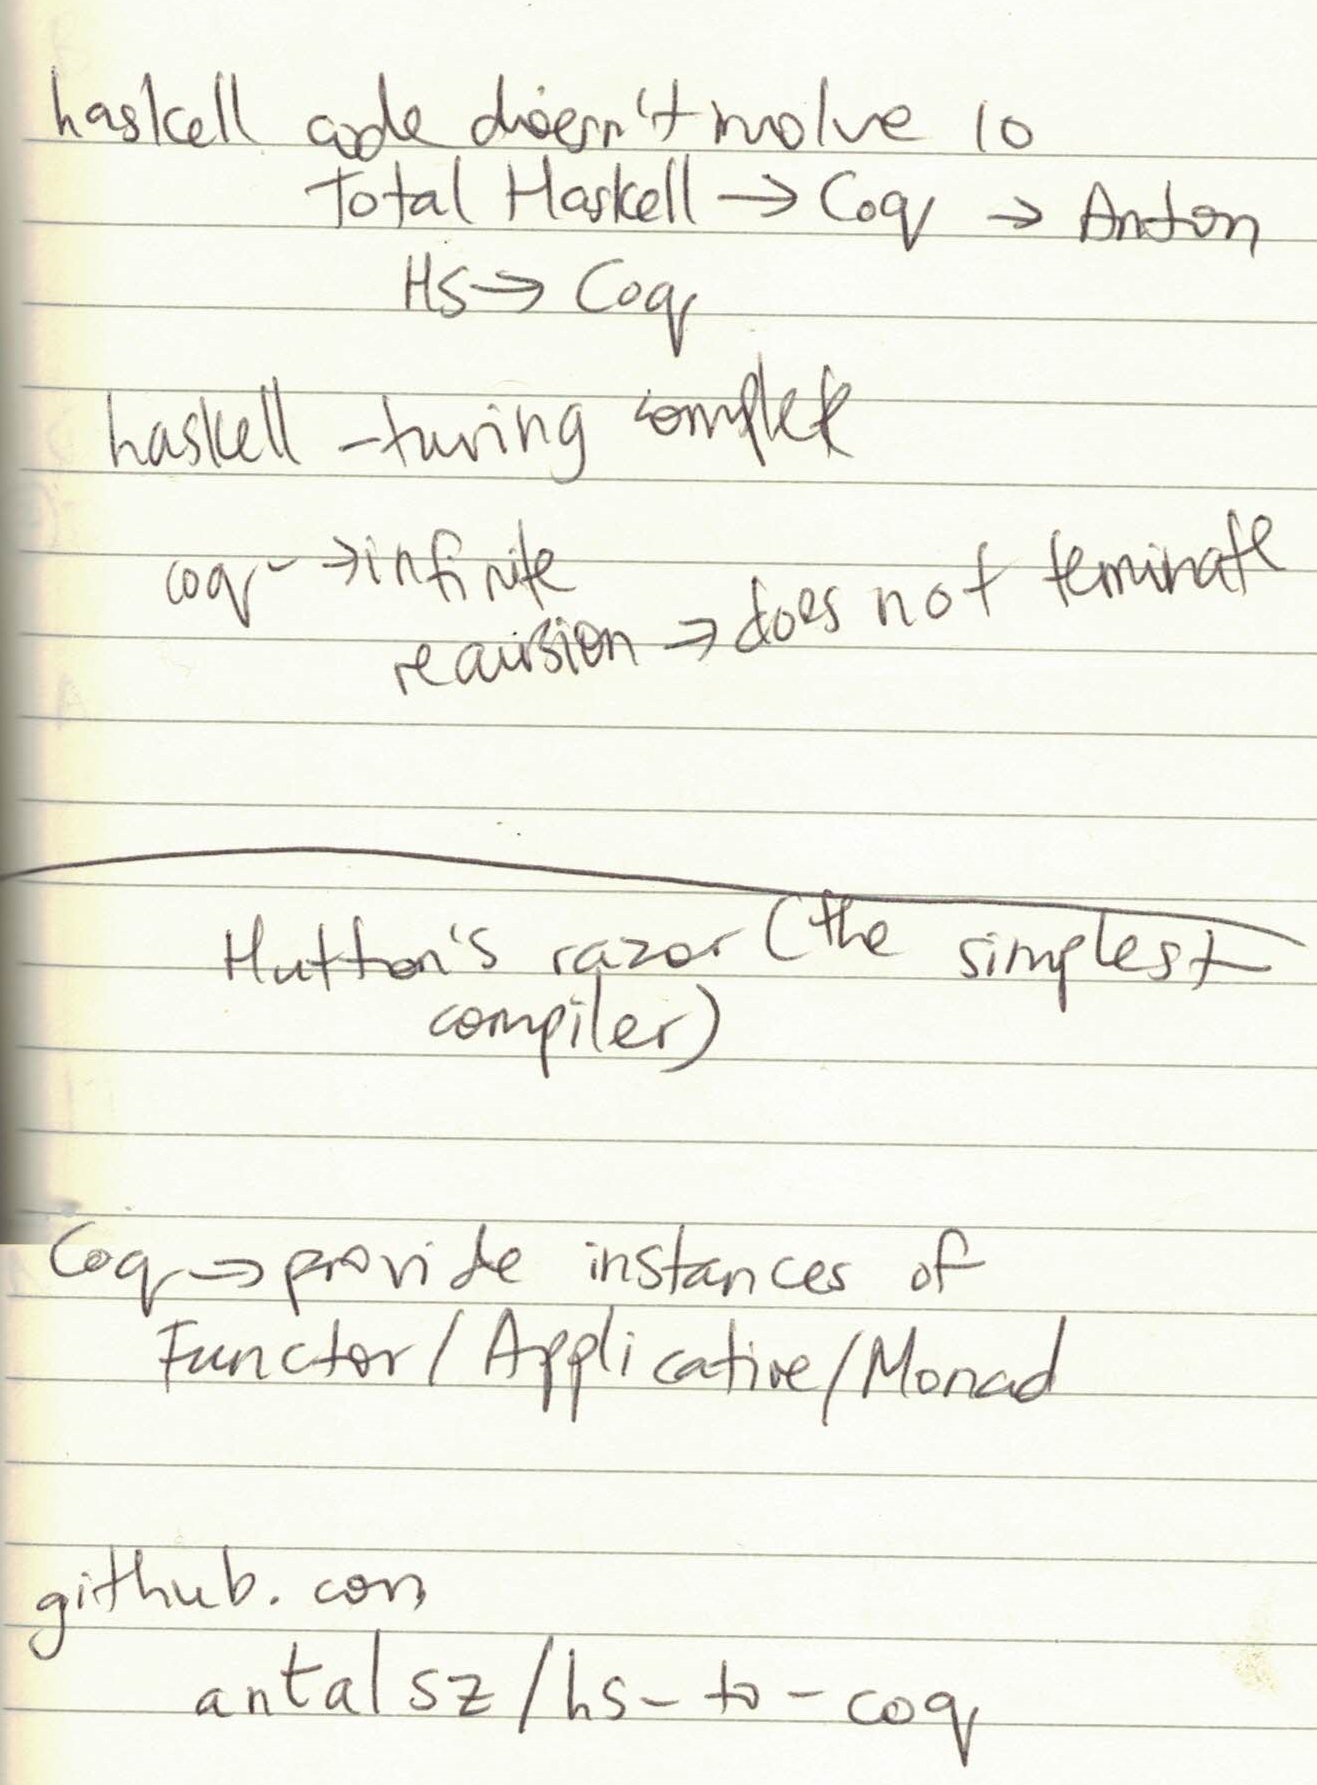 haskell code doesn't involve IO
Total Haskell → Coq → Anton
Hs → Coq
haskell - turing complete
coq - → infinite
recursion → does not teminate
Hutton's razor (the simplest
compiler)
Coq → provide instances of
Functor / Applicative / Monad
github.com
antalsz/hs-to-coq